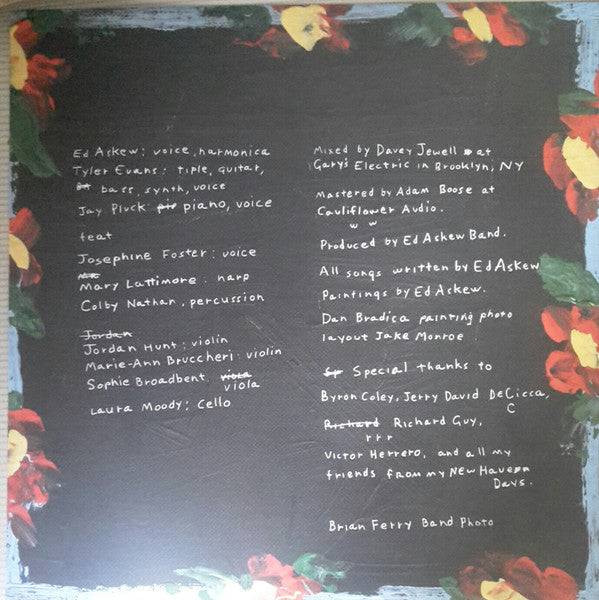 Ed Askew: voice, harmonica
Tyler Evans: tiple, guitar,
bass, synth, voice
Jay Pluck: piano, voice
feat
Josephine Foster: voice
Mary Lattimore: harp
Colby Nathan, percussion
Jordan
Jordan Hunt: violin
Marie-Ann Bruccheri: violin
Sophie Broadbent, viola
viola
Laura Moody; Cello
Mixed by Davey Jewell at
Gary's Electric in Brooklyn, NY
Mastered by Adam Boose at
Cauliflower Audio.
w w
Produced by Ed Askew Band.
All songs written by Ed Askew
Paintings by Ed Askew.
Dan Bradica painting photo
layout Jake Monroe
Sp Special thanks to
Byron Coley, Jerry David DeCicca,
C
Richard Richard Guy,
r r r
Victor Herrero, and all my
friends from my New Haven
Days.
Brian Ferry Band Photo